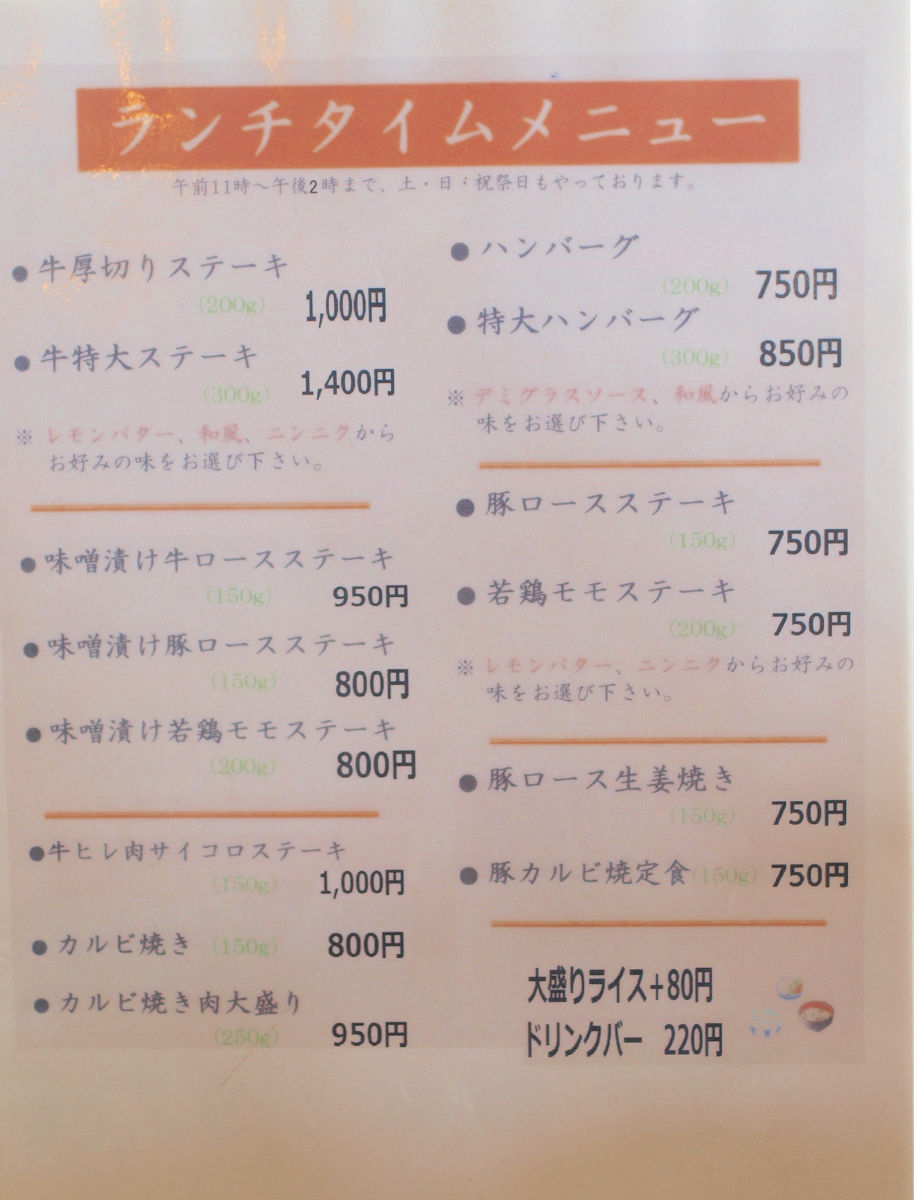 ランチタイムメニュー
午前11時～午後2時まで、土・日・祝祭日もやっております。
● 牛厚切りステーキ
(200g) 1,000円
● 牛特大ステーキ
(300g) 1,400円
※ レモンバター、和風、ニンニクから
お好みの味をお選び下さい。
● 味噌漬け牛ロースステーキ
(150g) 950円
● 味噌漬け豚ロースステーキ
(150g) 800円
● 味噌漬け若鶏モモステーキ
(200g) 800円
●牛ヒレ肉サイコロステーキ
(150g) 1,000円
● カルビ焼き (150g) 800円
● カルビ焼き肉大盛り
(250g) 950円
● ハンバーグ
(200g) 750円
● 特大ハンバーグ
(300g) 850円
※ デミグラスソース、和風からお好みの
味をお選び下さい。
● 豚ロースステーキ
(150g) 750円
● 若鶏モモステーキ
(200g) 750円
※ レモンバター、ニンニクからお好みの
味をお選び下さい。
● 豚ロース生姜焼き
(150g) 750円
● 豚カルビ焼定食(150g) 750円
大盛りライス+80円
ドリンクバー 220円